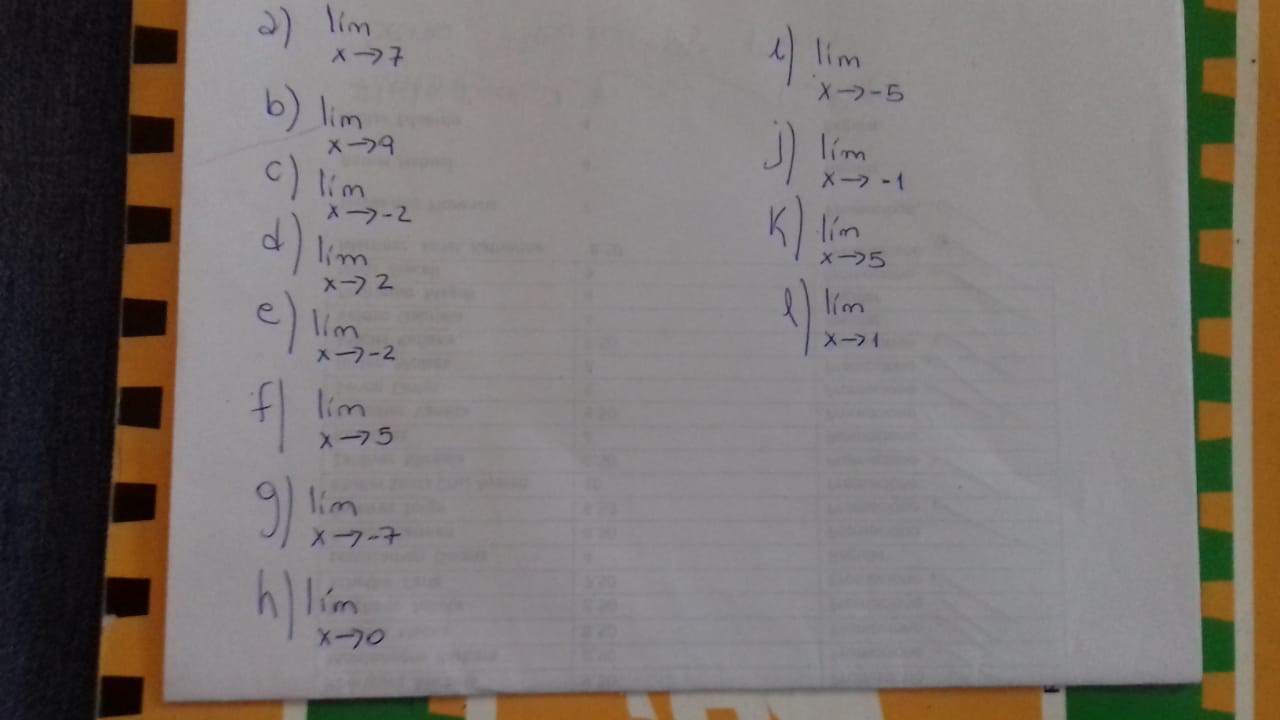 a) lím
x→7
b) lím
x→9
c) lím
x→-2
d) lím
x→2
e) lím
x→-2
f) lím
x→5
g) lím
x→-7
h) lím
x→0
i) lím
x→-5
j) lím
x→-1
k) lím
x→5
l) lím
x→1